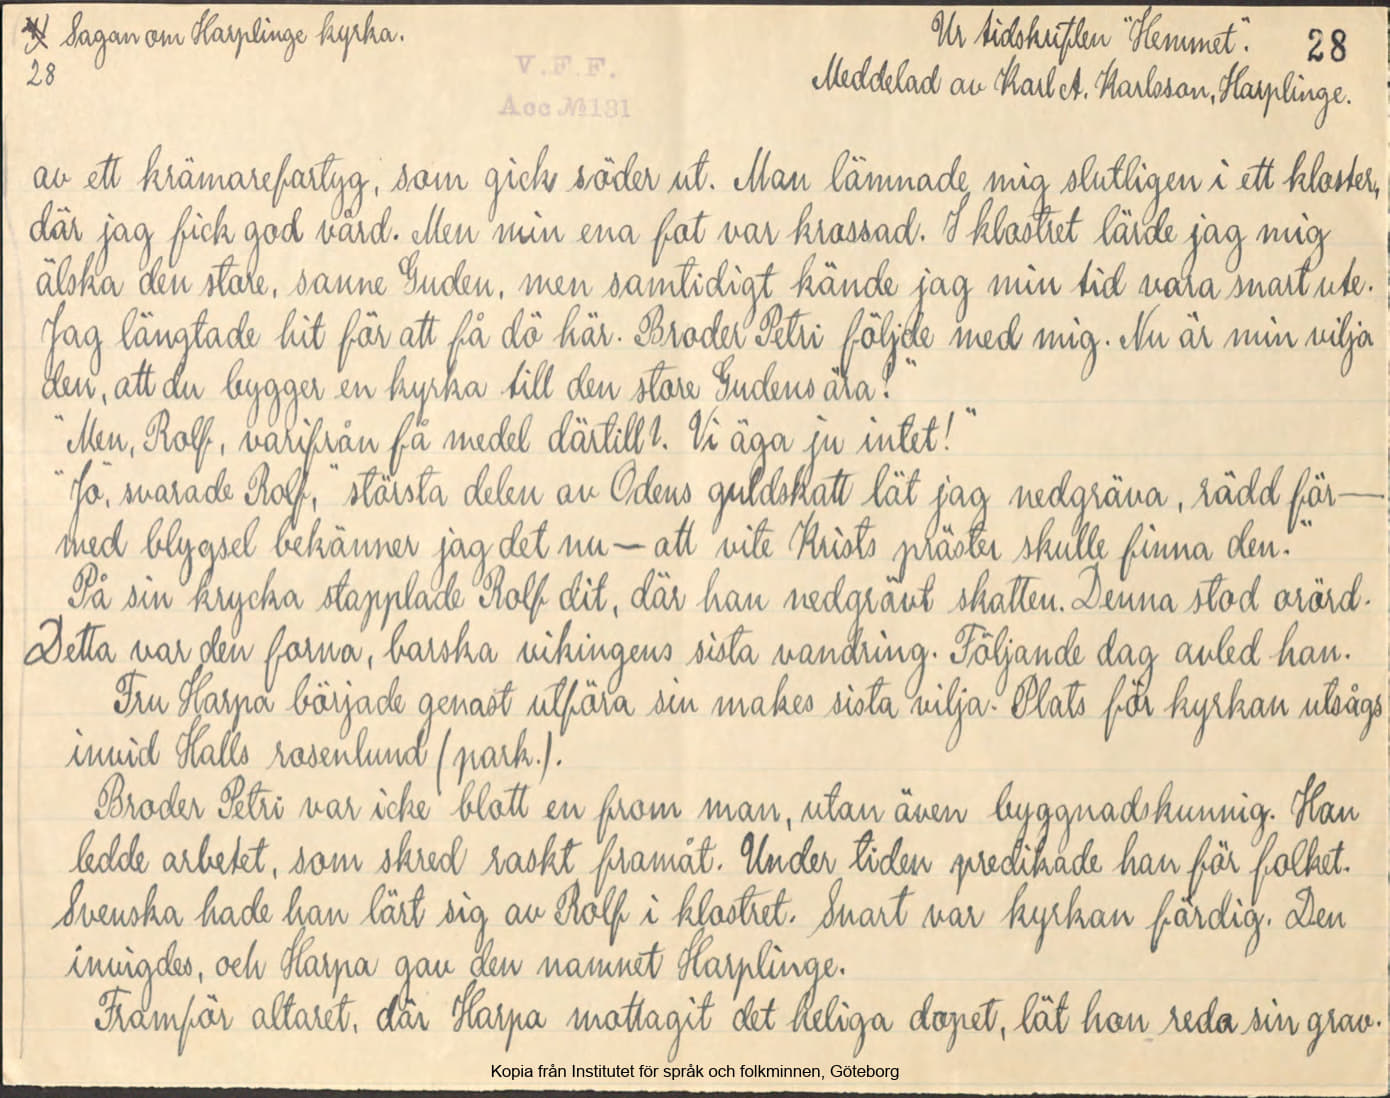 4) Sagan om Harplinge kyrka.
28
Ur tidskriften "Hemmet".
28
Meddelad av Karl A. Karlsson, Harplinge.
V.F.F.
Acc №131
av ett krämarefartyg, som gick söder ut. Man lämnade mig slutligen i ett kloster,
där jag fick god vård. Men min ena fot var krossad. I klostret lärde jag mig
älska den store, sanne Guden, men samtidigt kände jag min tid vara snart ute.
Jag längtade hit för att få dö här. Broder Petri följde med mig. Nu är min vilja
den, att du bygger en kyrka till den store Gudens ära!"
"Men, Rolf, varifrån få medel därtill?. Vi äga ju intet!"
"Jo, svarade Rolf, "största delen av Odens guldskatt lät jag nedgräva, rädd för—
med blygsel bekänner jag det nu — att vite Krists präster skulle finna den."
På sin krycka stapplade Rolf dit, där han nedgrävt skatten. Denna stod orörd.
Detta var den forna, barska vikingens sista vandring. Följande dag avled han.
Fru Harpa började genast utföra sin makes sista vilja. Plats för kyrkan utsågs
invid Halls rosenlund (park.).
Broder Petri var icke blott en from man, utan även byggnadskunnig. Han
ledde arbetet, som skred raskt framåt. Under tiden predikade han för folket.
Svenska hade han lärt sig av Rolf i klostret. Snart var kyrkan färdig. Den
invigdes, och Harpa gav den namnet Harplinge.
Framför altaret, där Harpa mottagit det heliga dopet, lät hon reda sin grav.
Kopia från Institutet för språk och folkminnen, Göteborg